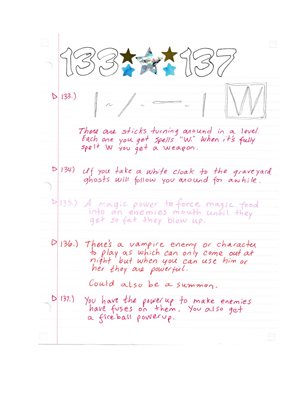 133 137
133.)
W
These are sticks turning around in a level.
Each one you get spells "W." When it's fully
spelt W you get a weapon.
134.) If you take a white cloak to the graveyard
ghosts will follow you around for awhile.
135.) A magic power to force magic food
into an enemies mouth until they
get so fat they blow up.
136.) There's a vampire enemy or character
to play as which can only come out at
night but when you can use him or
her they are powerful.
Could also be a summon.
137.) You have the power up to make enemies
have fuses on them. You also got
a fireball power up.